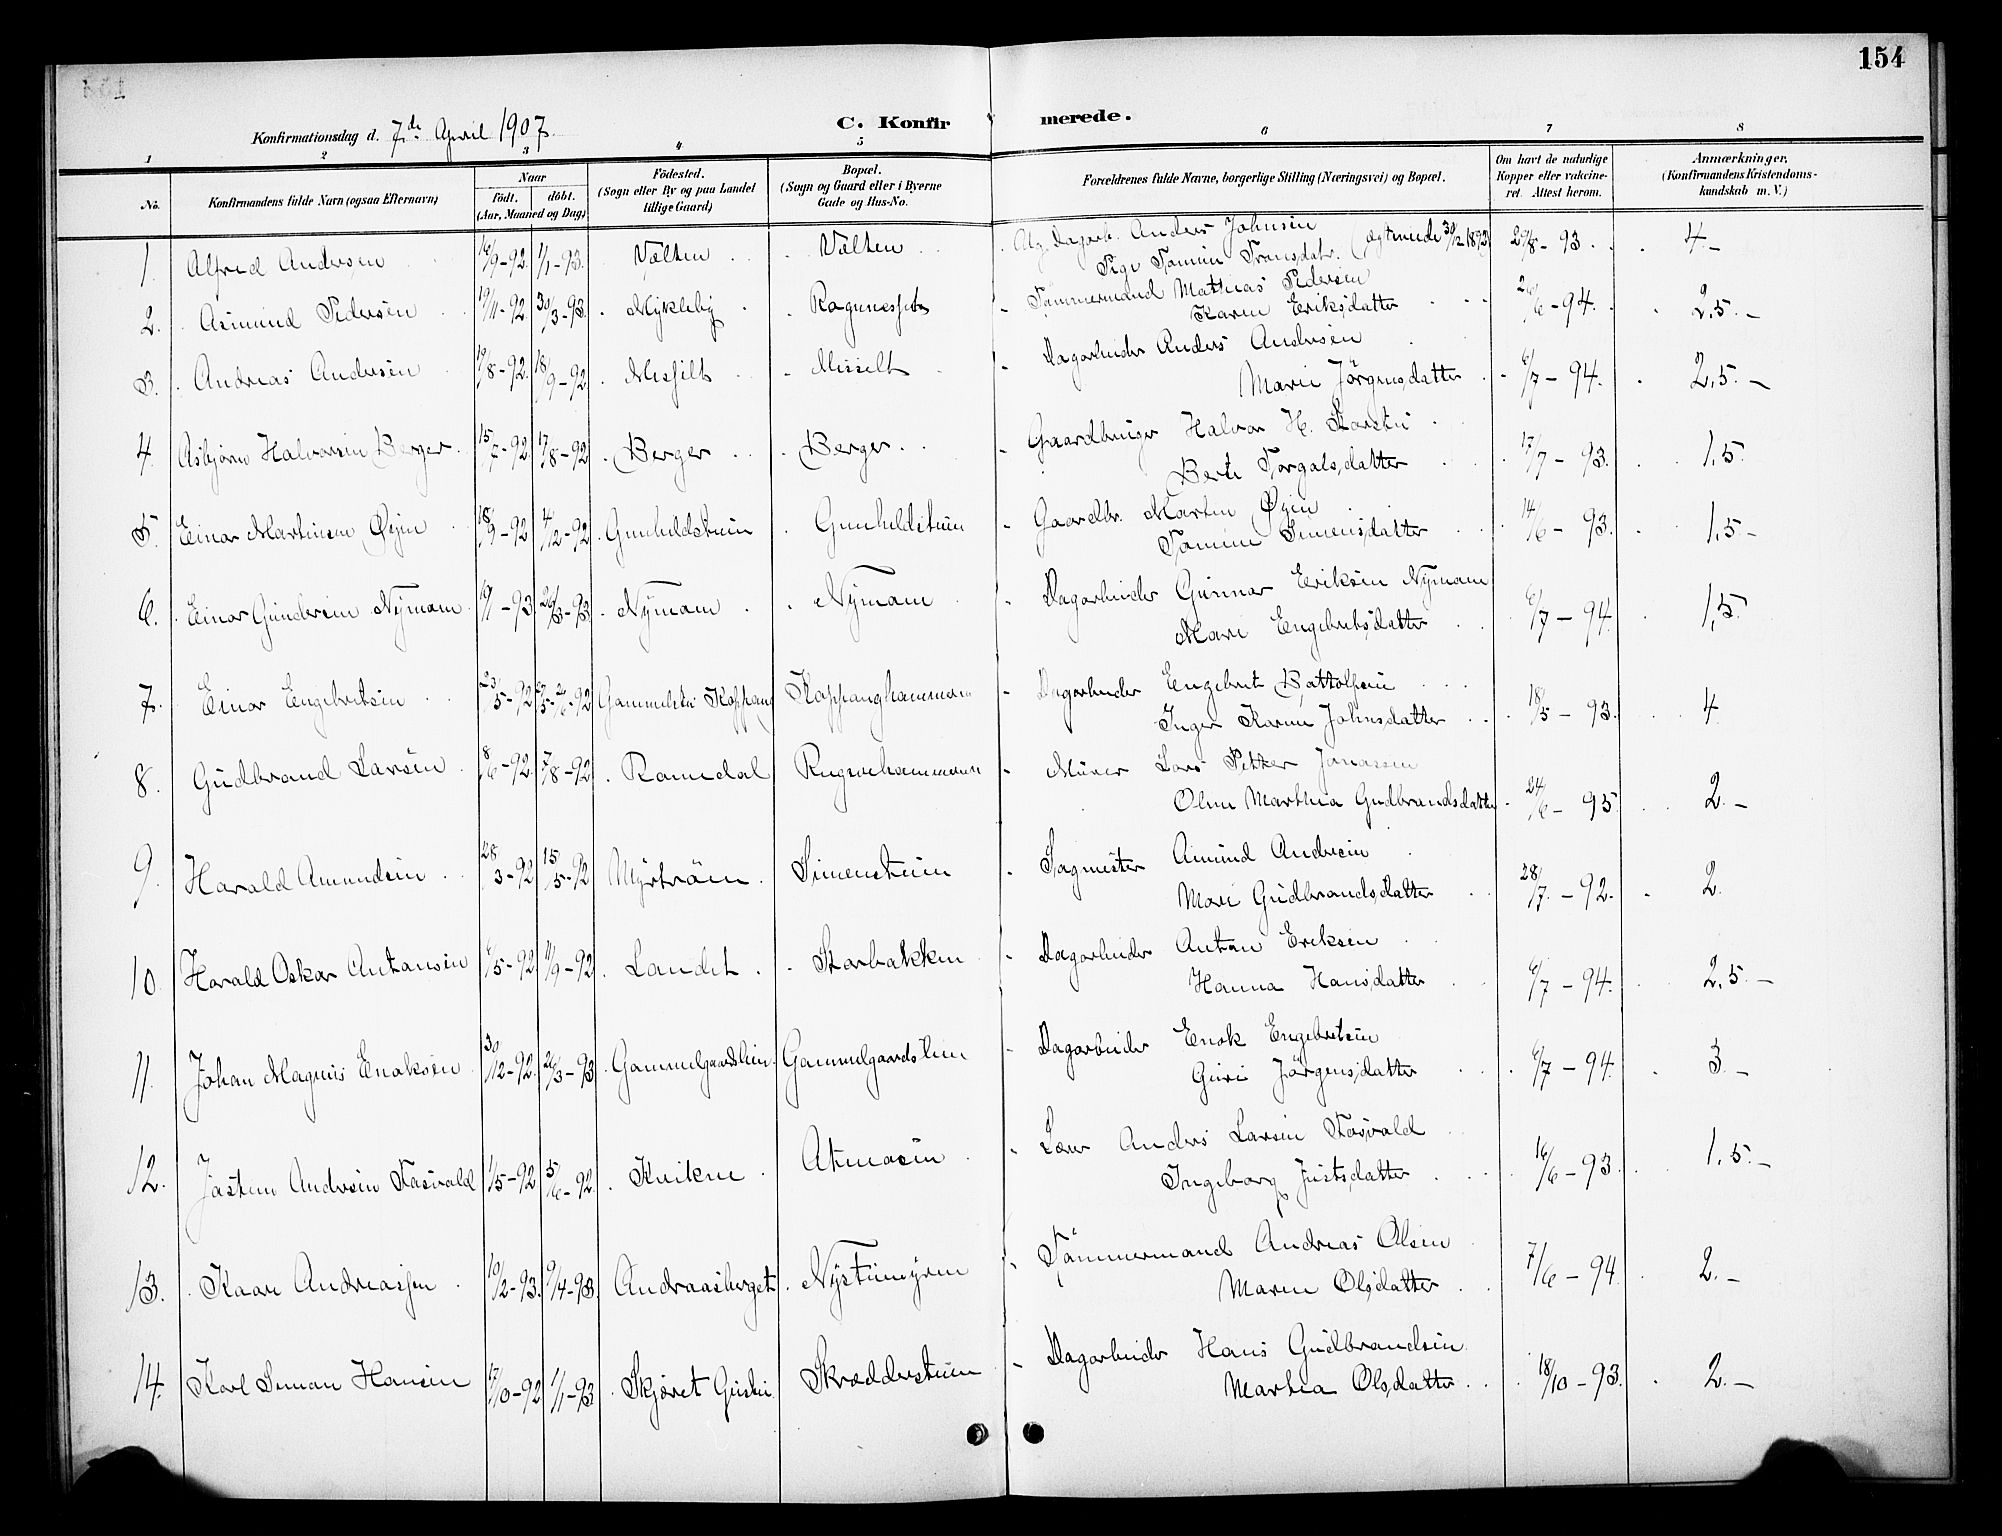 154
Konfirmationsdag d. 7de April 1907.
C. Konfirmerede.
1 2 3 4 5 6 7 8
No. Konfirmandens fulde Navn (ogsaa Efternavn) Naar født. døbt. (Aar, Maaned og Dag) Födested. (Sogn eller By og paa Landet tillige Gaard) Bopæl. (Sogn og Gaard eller i Byerne Gade og Hus-No. Forældrenes fulde Navne, borgerlige Stilling (Næringsvei) og Bopæl. Om havt de naturlige Kopper eller vakcineret. Attest herom. Anmærkninger, (Konfirmandens Kristendomskundskab m. V.)
1. Alfred Andersen 16/9-92. 1/1-93. Vælten Vælten Ug. Dagarb. Anders Johnsen (ægtviede 30/12 1892) 29/8-93. 4-
Pige Tomine Fransdatr.
2. Asmund Pedersen 19/11-92. 30/3-93. Mykleby Ragnnesset Tømmermand Mathias Pedersen 26/6-94. 2,5.-
Karen Eriksdatter
3. Andreas Andersen 10/8-92. 18/9-92. Messelt Misselt Dagarbeider Anders Andersen 6/7-94. 2,5.-
Marie Jörgensdatter
4. Asbjörn Halvorsen Berger 15/7-92. 17/8-92. Berger Berger Gaardbruger Halvor H. 17/7-93. 1,5.
Berte Torgalsdatter
5. Einar Martinsen Øien 18/9-92 4/12-92 Gunhildstuen Gunhildstuen Gaardbr. Martin Øien 14/6-93. 1,5-
Tomine Simensdatter
6. Einar Gundersen Nymoen 19/1-93. 26/3-93. Nymoen Nymoen Dagarbeider Gunnar Eriksen Nymoen 6/7-94. 1,5.
Mari Engebretsdatter
7. Einar Engebretsen 23/5-92 -92 Koppang Koppanghammeren Dagarbeider Engebret Battolfsen 18/5-93. 4
Inger Karine Johnsdatter
8. Gudbrand Larsen 8/6-92. 7/8-92. Romedal Murer Lars Petter Jonassen 24/6-95. 2.-
Oline Marthea Gudbrandsdatter
9. Harald Amundsen 28/3-92 15/5-92 Myrtrøen Simenstuen Sagmester Amund Andersen 28/7.-92. 2.
Mari Gudbrandsdatter
10. Harald Oskar Antonsen 6/5-92. 11/9-92 Landet Storbakken Dagarbeider Anton Eriksen 6/7-94. 2,5.-
Hanna Hansdatter
11. Johan Magnus Enoksen 30/12-92. 26/3-93 Gammelgaardslien Gammelgaardslien Dagarbeider Enok Engebretsen 6/7-94. 3.-
Guri Jörgensdatter
12. Jostein Andersen Fosvold 1/5-92 5/6-92. Kvikne Atmoen Lær Anders Larsen Fosvold 16/6-93. 1.5.-
Ingeborg Justsdatter
13. Kaare Andreassen 10/2-93. 9/4-93. Andraasberget Nystumyren Tømmermand Andreas Olsen 7/6-94. 2.-
Maren Olsdatter
14. Karl Simon Hansen 17/10-92 1/1-93 Skjæret Skrædderstuen Dagarbeider Hans Gudbrandsen 18/10-93. 2.-
Marthea Olsdatter